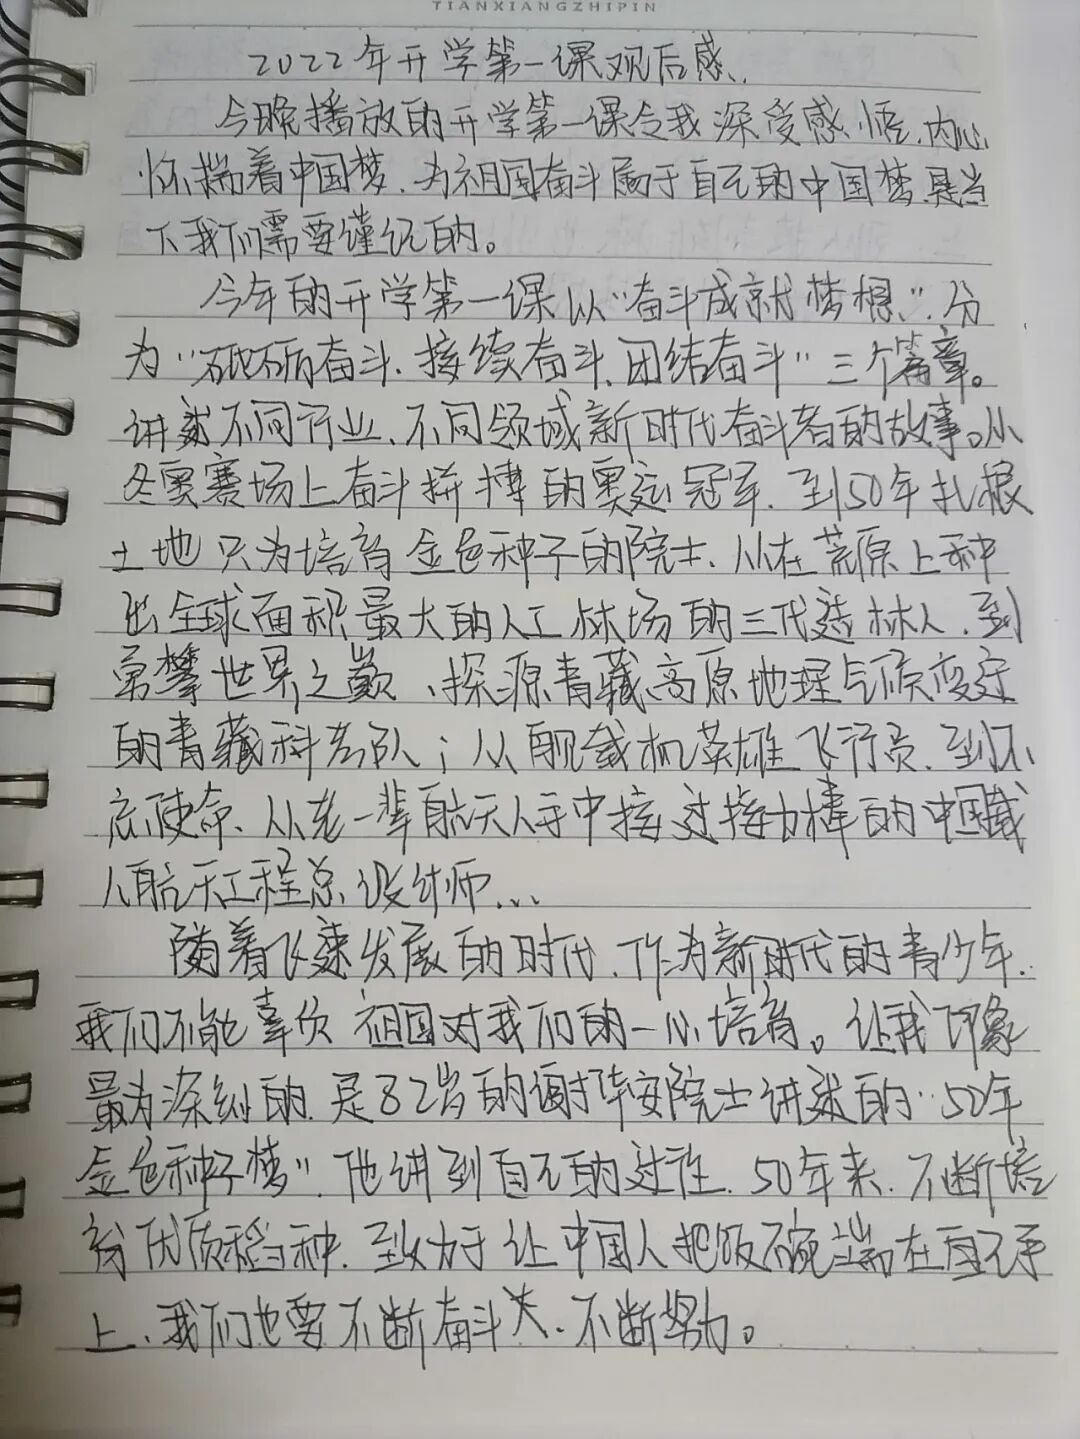 TIANXIANGZHIPIN
2022年开学第一课观后感.
今晚播放的开学第一课令我深受感悟,内心
怀揣着中国梦,为祖国奋斗属于自己的中国梦,是当
下我们需要谨记的。
今年的开学第一课以“奋斗成就梦想”,分
为“砥砺奋斗、接续奋斗、团结奋斗”三个篇章。
讲述不同行业、不同领域新时代奋斗者的故事。从
冬奥赛场上奋斗拼搏的奥运冠军,到50年扎根
土地只为培育金色种子的院士,从在荒原上种
出全球面积最大的人工林场的三代造林人,到
勇攀世界之巅、探源青藏高原地理气候变迁
的青藏科考队;从舰载机英雄飞行员,到不
忘使命、从老一辈航天人手中接过接力棒的中国载
人航天工程总设计师...
随着飞速发展的时代,作为新时代的青少年,
我们不能辜负祖国对我们的一心培育。让我印象
最为深刻的,是82岁的谢华安院士讲述的“50年
金色种子梦”,他讲到自己的过往,50年来,不断培
育优质稻种,致力于让中国人把饭碗端在自己手
上、我们也要不断奋斗、不断努力。